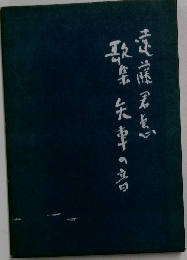 遠藤君惠
歌集 矢車の音